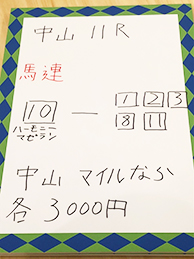 中山 11R
馬連
10 — 1 2 3
ハーモニー
マゼラン
8 11
中山 マイルなら
各 3000円